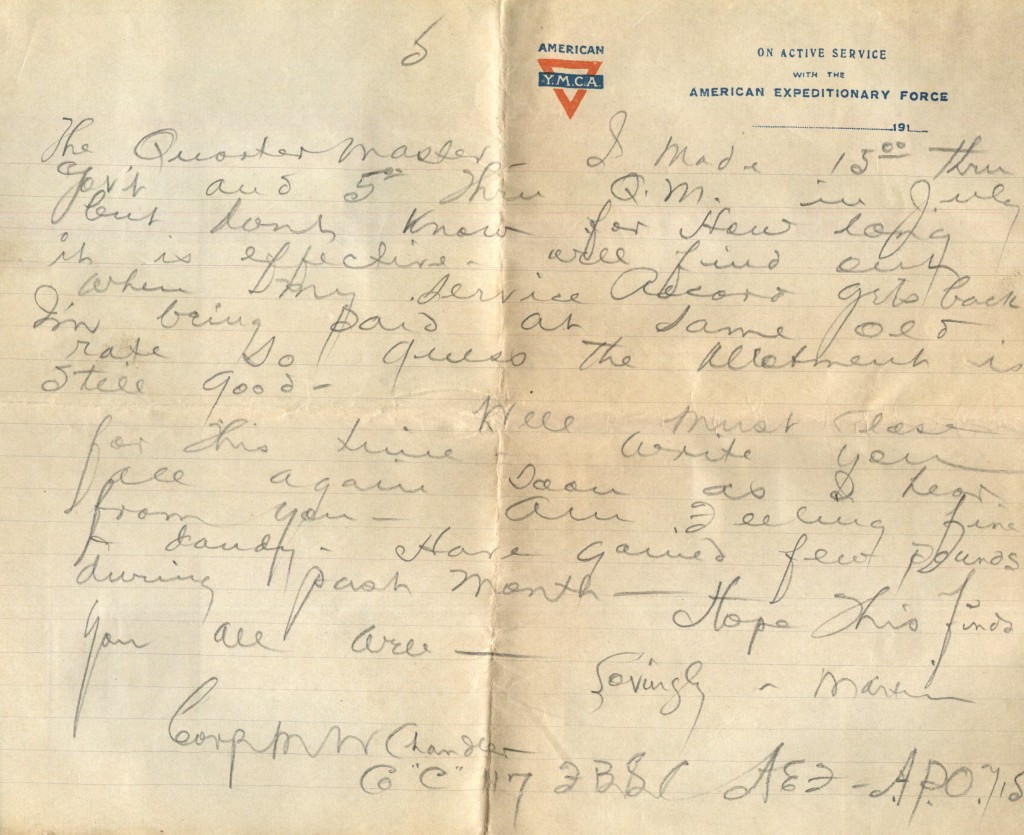 5
AMERICAN
Y.M.C.A.
ON ACTIVE SERVICE
WITH THE
AMERICAN EXPEDITIONARY FORCE
191
The Quarter Master - I made 15⁰⁰ thru
Gov't and 5⁰⁰ thru Q.M. in July
but dont know for How long
it is effective - will find out
when my service Record gets back
I'm being paid at same old
rate so guess the allotment is
still good -
Well must close
for this time - write you
all again soon as I hear
from you - Am Feeling fine
& dandy - Have gained few pounds
during past month —
Hope this finds
you all well —
Lovingly - Martin
Corp M W Chandler
Co "C" 117 F B S C AEF - A.P.O. 715